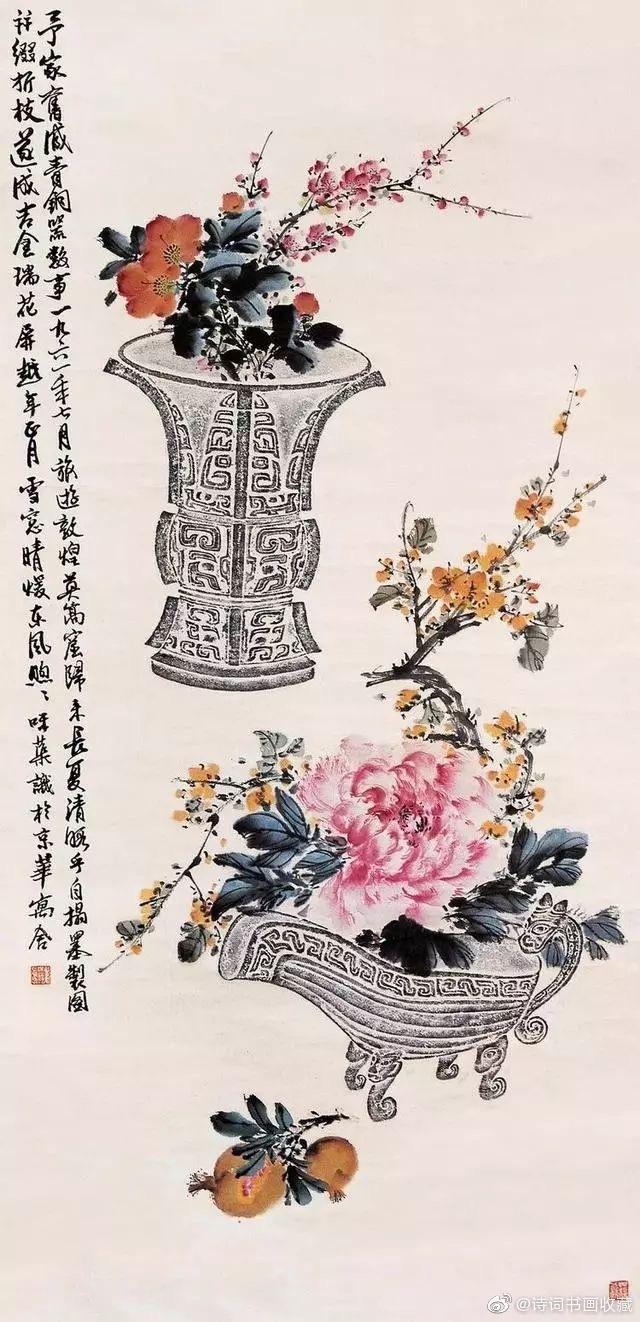 予家旧藏青铜器数事一九六一年七月旅遊敦煌莫高窟歸来長夏清暇手自搨墨製圖
并缀折枝遂成吉金瑞花屏越年正月雪窓晴暖东风煦〻味蕖識於京華寓舍
@诗词书画收藏